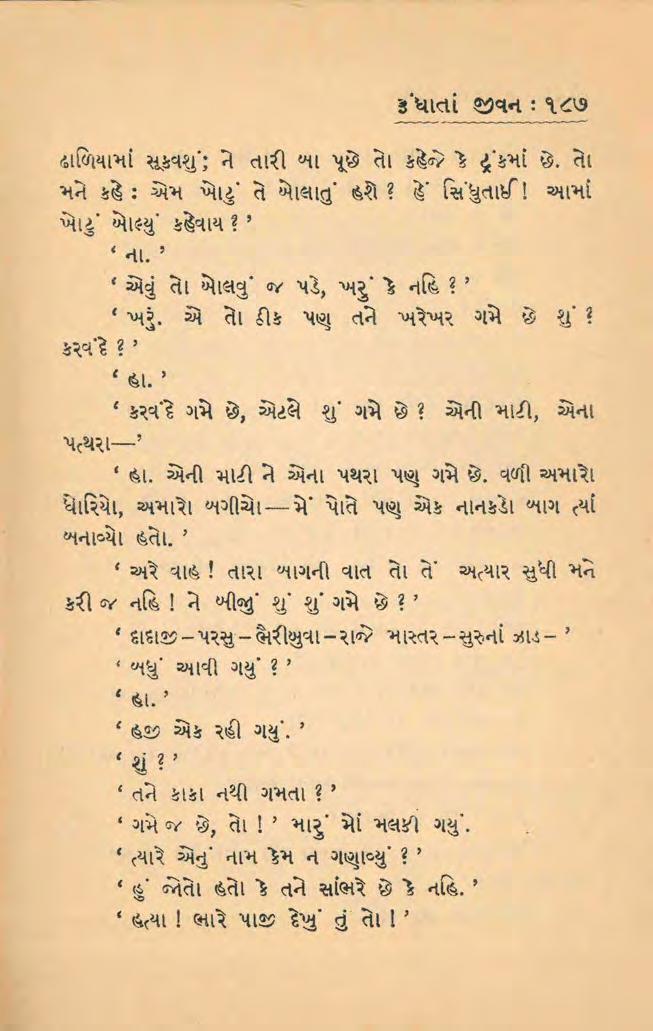 રૂંધાતાં જીવન : ૧૮૭
ઢાળિયામાં સૂકવશું; ને તારી બા પૂછે તો કહેજે કે ટ્રંકમાં છે. તો
મને કહે : એમ ખોટું તે બોલાતું હશે ? હેં સિંધુતાઈ ! આમાં
ખોટું બોલ્યું કહેવાય ? ’
‘ ના. ’
‘ એવું તો બોલવું જ પડે, ખરું કે નહિ ? ’
‘ ખરૂં. એ તો ઠીક પણ તને ખરેખર ગમે છે શું ?
કરવંદે ? ’
‘ હા. ’
‘ કરવંદે ગમે છે, એટલે શું ગમે છે ? એની માટી, એના
પત્થરા—’
‘ હા. એની માટી ને એના પથરા પણ ગમે છે. વળી અમારો
ધોરિયો, અમારો બગીચો—મેં પોતે પણ એક નાનકડો બાગ ત્યાં
બનાવ્યો હતો. ’
‘ અરે વાહ ! તારા બાગની વાત તો તેં અત્યાર સુધી મને
કરી જ નહિ ! ને બીજું શું શું ગમે છે ? ’
‘ દાદાજી – પરસુ – ભૈરીબુવા – રાજે માસ્તર – સુરુનાં ઝાડ – ’
‘ બધું આવી ગયું ? ’
‘ હા. ’
‘ હજી એક રહી ગયું. ’
‘ શું ? ’
‘ તને કાકા નથી ગમતા ? ’
‘ ગમે જ છે, તો ! ’ મારું મોં મલકી ગયું.
‘ ત્યારે એનું નામ કેમ ન ગણાવ્યું ? ’
‘ હું જોતો હતો કે તને સાંભરે છે કે નહિ. ’
‘ હત્યા ! ભારે પાજી દેખું તું તો ! ’